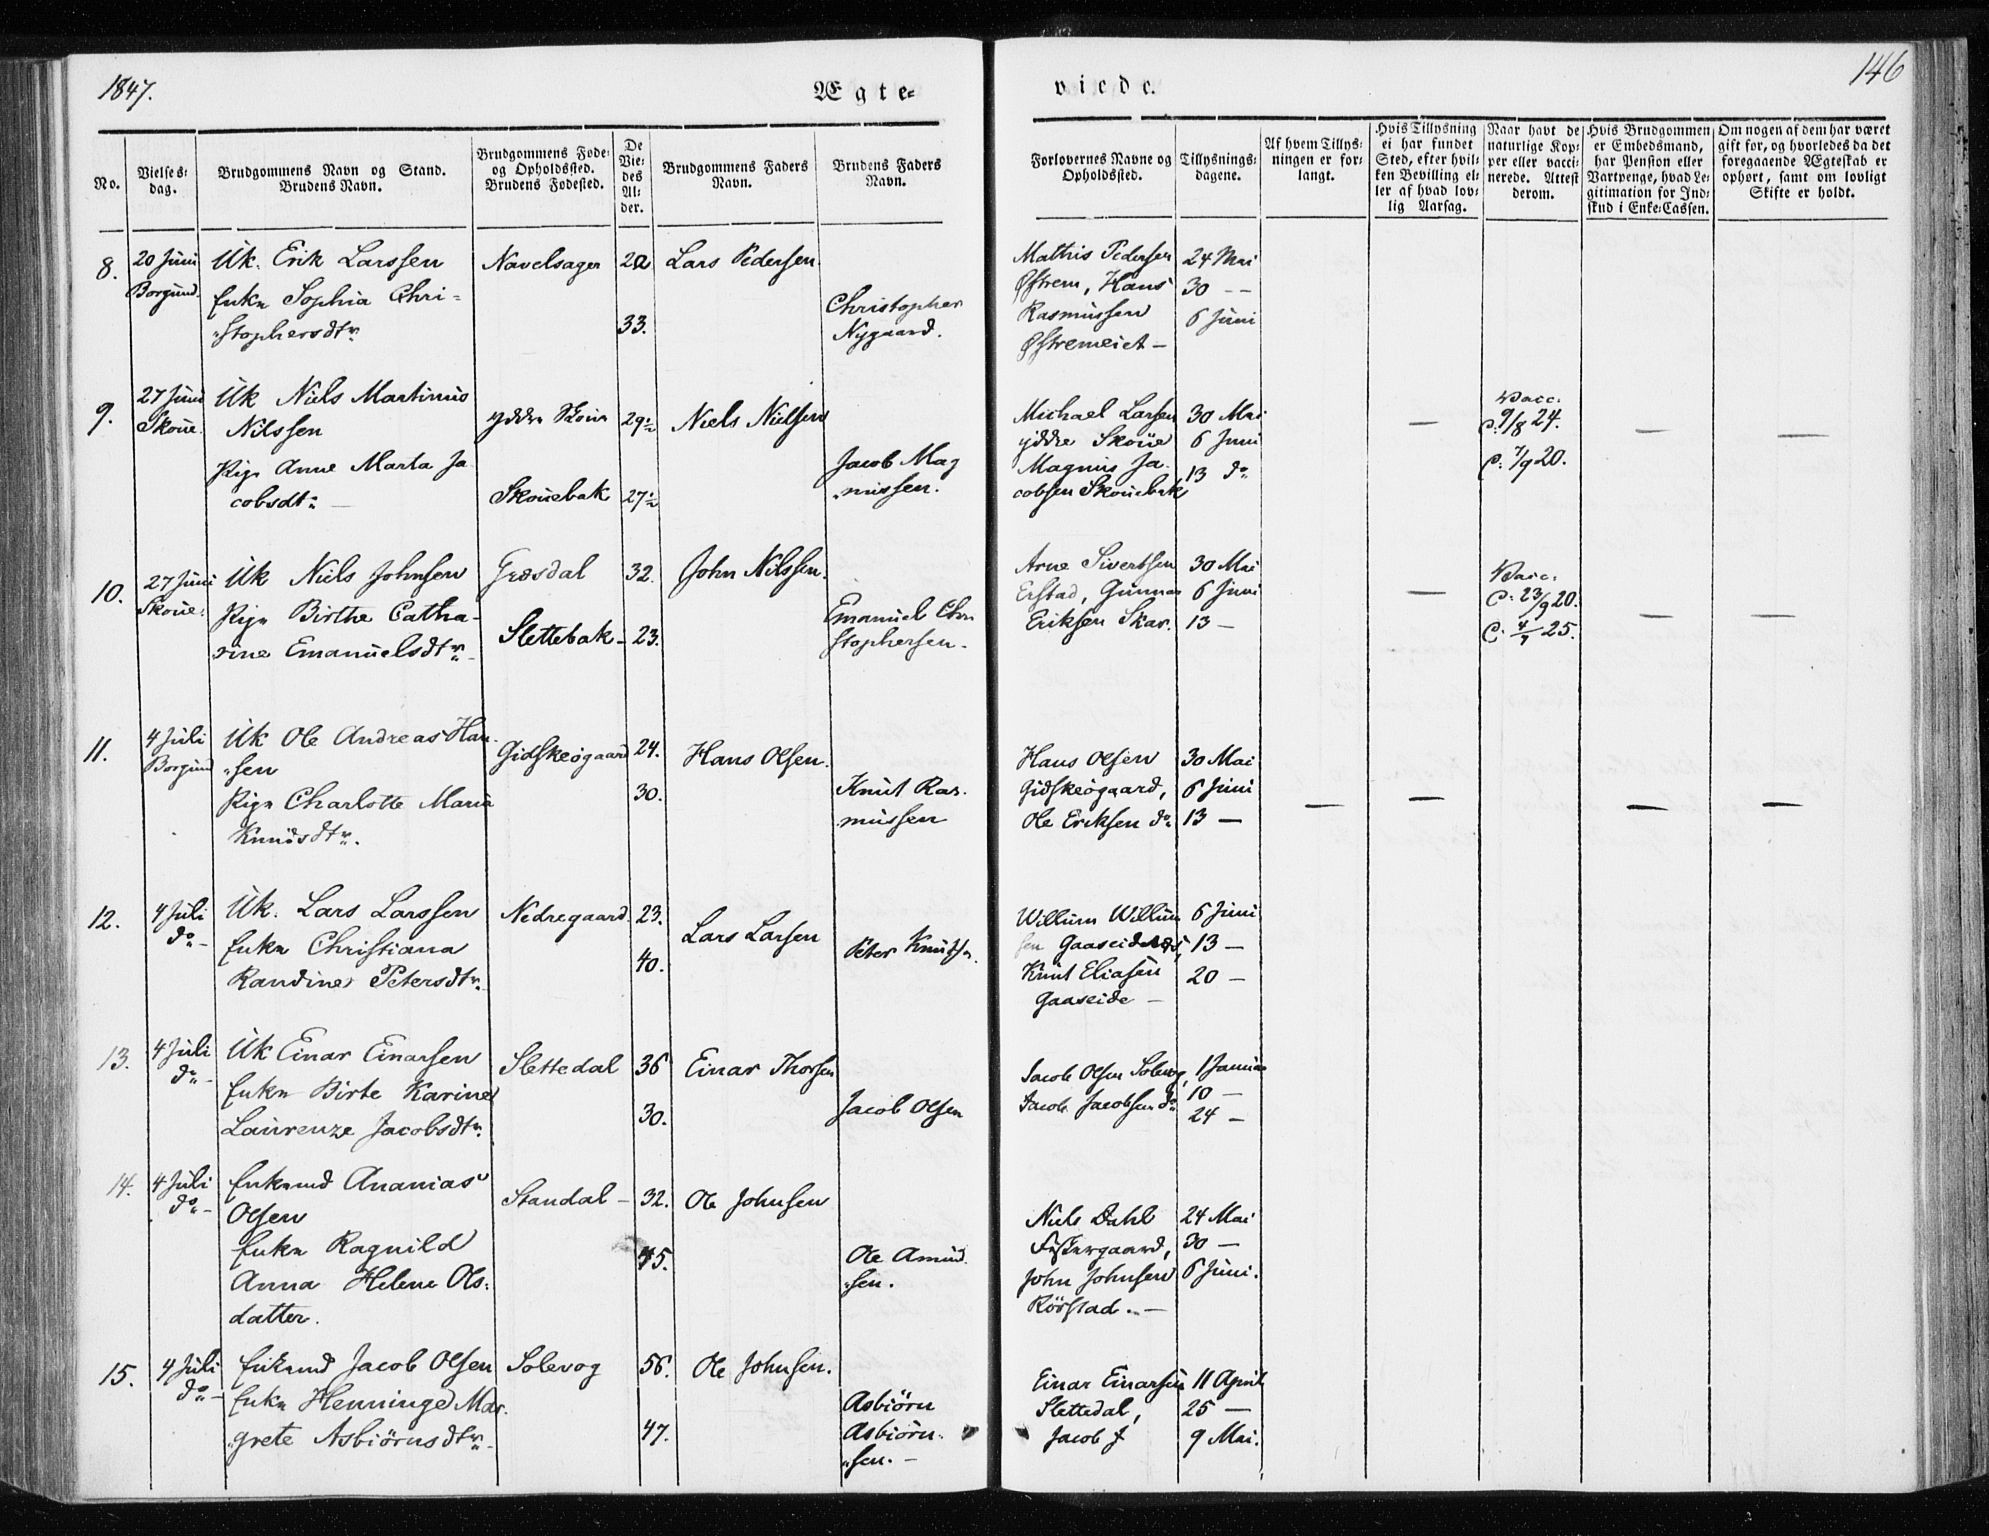 1847.
Ægte=
viede.
146
No.
Vielses=
dag.
Brudgommens Navn og Stand.
Brudens Navn.
Brudgommens Føde=
og Opholdssted.
Brudens Fødested.
De
Vie=
des
Al=
der.
Brudgommens Faders
Navn.
Brudens Faders
Navn.
Forlovernes Navne og
Opholdssted.
Tillysnings=
dagene.
Af hvem Tillys=
ningen er for=
langt.
Hvis Tillysning
ei har fundet
Sted, efter hvil=
ken Bevilling el=
ler af hvad lov=
lig Aarsag.
Naar havt de
naturlige Kop=
per eller vacci=
nerede. Attest
derom.
Hvis Brudgommen
er Embedsmand,
har Pension eller
Vartpenge, hvad Le=
gitimation for Ind=
skud i Enke=Cassen.
Om nogen af dem har været
gift før, og hvorledes da det
foregaaende Ægteskab er
ophørt, samt om lovligt
Skifte er holdt.
8.
20 Juni
Borgund.
Uk. Erik Larssen
Enke Sophia Chri=
stophersdtr.
Navelsager
33.
Lars Pedersen.
Christopher
Nygaard.
Mathis Pedersen
Østrem, Hans
Rasmussen
Østremeiet —
24 Mai
30 --
6 Juni
9.
27 Juni
Skoue.
Uk Niels Martinus
Nilssen
Pige Anne Marta Ja
cobsdtr —
yddre Skoue
Skouebak
29½
27½
Niels Nielsen
Jacob Mag
nussen.
Michael Larsen
yddre Skoue
Magnus Ja
cobsen Skouebak
30 Mai
6 Juni
13 do
—
Vacc.
C: 9/8 24.
C: 7/9 20.
—
—
10.
27 Juni
Skoue.
Uk Niels Johnsen
Pige Birthe Catha-
rine Emanuelsdtr
Græsdal
Slettebak -
32.
23.
John Nilssen.
Emanuel Chri
stophersen.
Arne Sivertsen
Erstad, Gunnar
Eriksen Skar.
30 Mai
6 Juni
13 —
—
Vacc.
C: 23/9 20.
C. 4/7 25.
—
—
11.
4 Juli
Borgund
Uk Ole Andreas Han
sen
Pige Charlotte Maria
Knudsdtr.
Gidskeøgaard
24.
30.
Hans Olsen.
Knut Ras.
mussen
Hans Olsen
Gidskeøgaard,
Ole Eriksen do
30 Mai
6 Juni
13 —
—
—
—
—
12.
4 Juli
do -
Uk. Lars Larssen
Enke Christiana
Randine Petersdtr.
Nedregaard
23.
40.
Lars Larsen
Peter Knuts.
Willum Willum
sen Gaaseidnes,
Knut Eliasen
Gaaseide —
6 Juni
13 —
20 —
13.
4 Juli
do -
Uk Einar Einarsen
Enke Birte Karine
Laurenze Jacobsdtr.
Slettedal
36
30.
Einar Thorsen
Jacob Olsen
Jacob Olsen Solevog,
Jacob Jacobsen do
1 Januar
10 —
24 —
14.
4 Juli
do -
Enkemd Ananias
Olsen
Enke Ragnild
Anna Helene Ols=
datter.
Standal -
32.
45.
Ole Johnsen
Ole Amund
sen.
Niels Dahl
John Johnsen
Rörstad. —
24 Mai
30 —
6 Juni.
15.
4 Juli
do -
Enkemd Jacob Olsen
Enke Henninge Mar.
grete Asbiörnsdtr
Solevog
56.
47.
Ole Johnsen.
Asbiörn
Asbiörn.
sen. -
Einar Einarsen
Slettedal,
Jacob J
11 April
25 —
9 Mai.